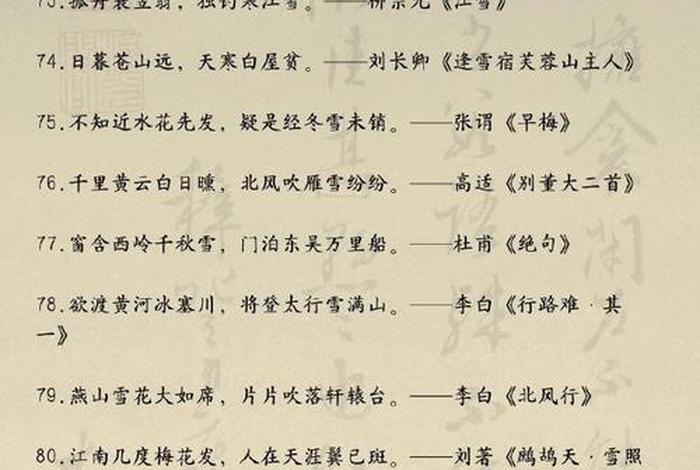 73.孤舟蓑笠翁，独钓寒江雪。——柳宗元《江雪》
74.日暮苍山远，天寒白屋贫。——刘长卿《逢雪宿芙蓉山主人》
75.不知近水花先发，疑是经冬雪未销。——张谓《早梅》
76.千里黄云白日曛，北风吹雁雪纷纷。——高适《别董大二首》
77.窗含西岭千秋雪，门泊东吴万里船。——杜甫《绝句》
78.欲渡黄河冰塞川，将登太行雪满山。——李白《行路难·其
一》
79.燕山雪花大如席，片片吹落轩辕台。——李白《北风行》
80.江南几度梅花发，人在天涯鬓已斑。——刘著《鹧鸪天·雪照